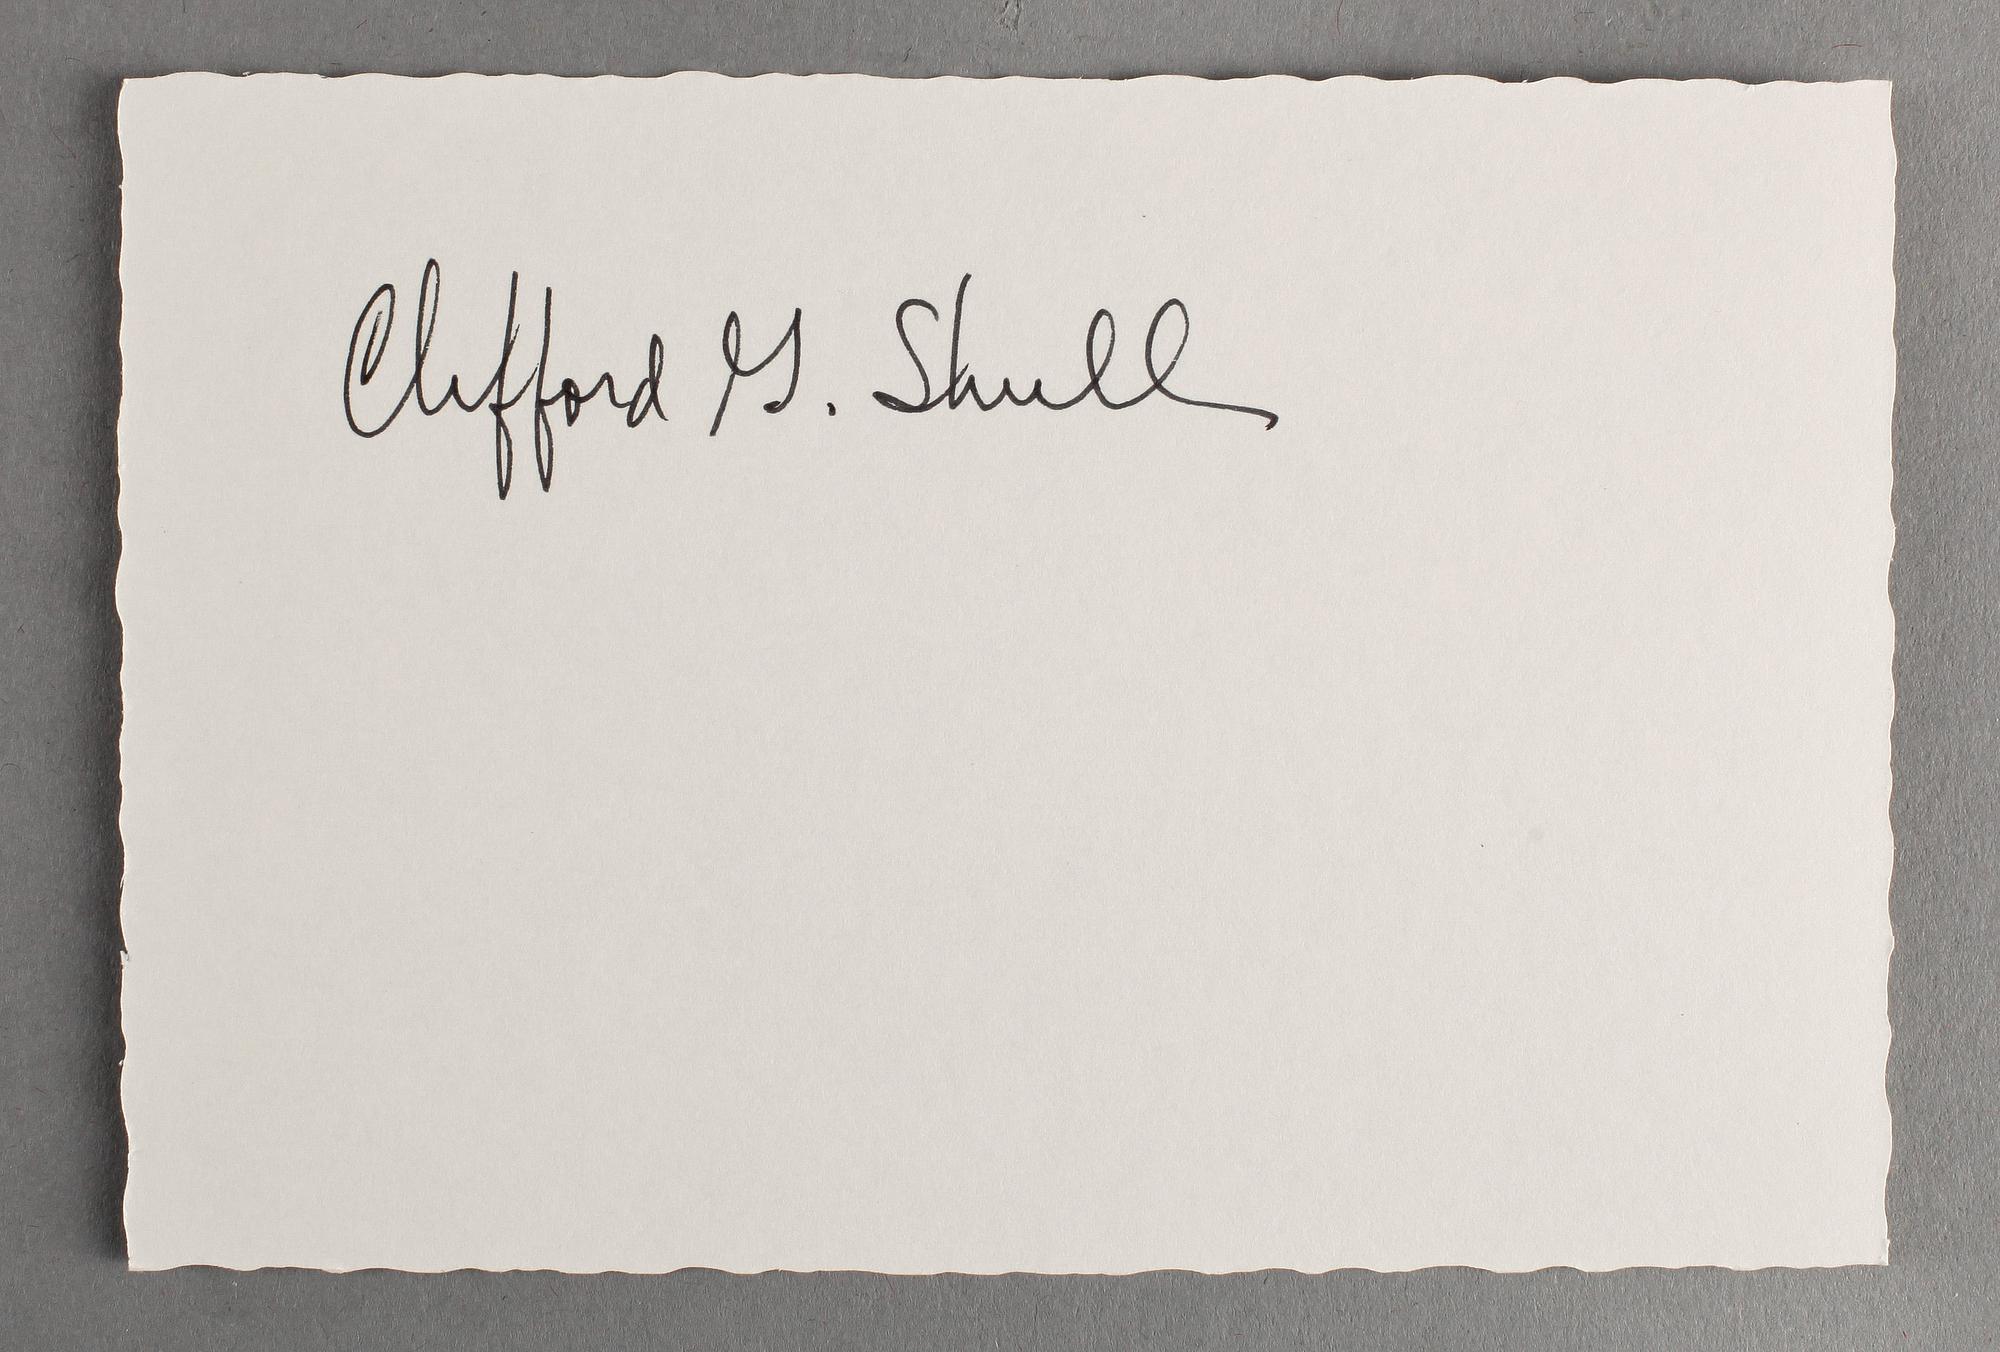 Clifford G. Shull